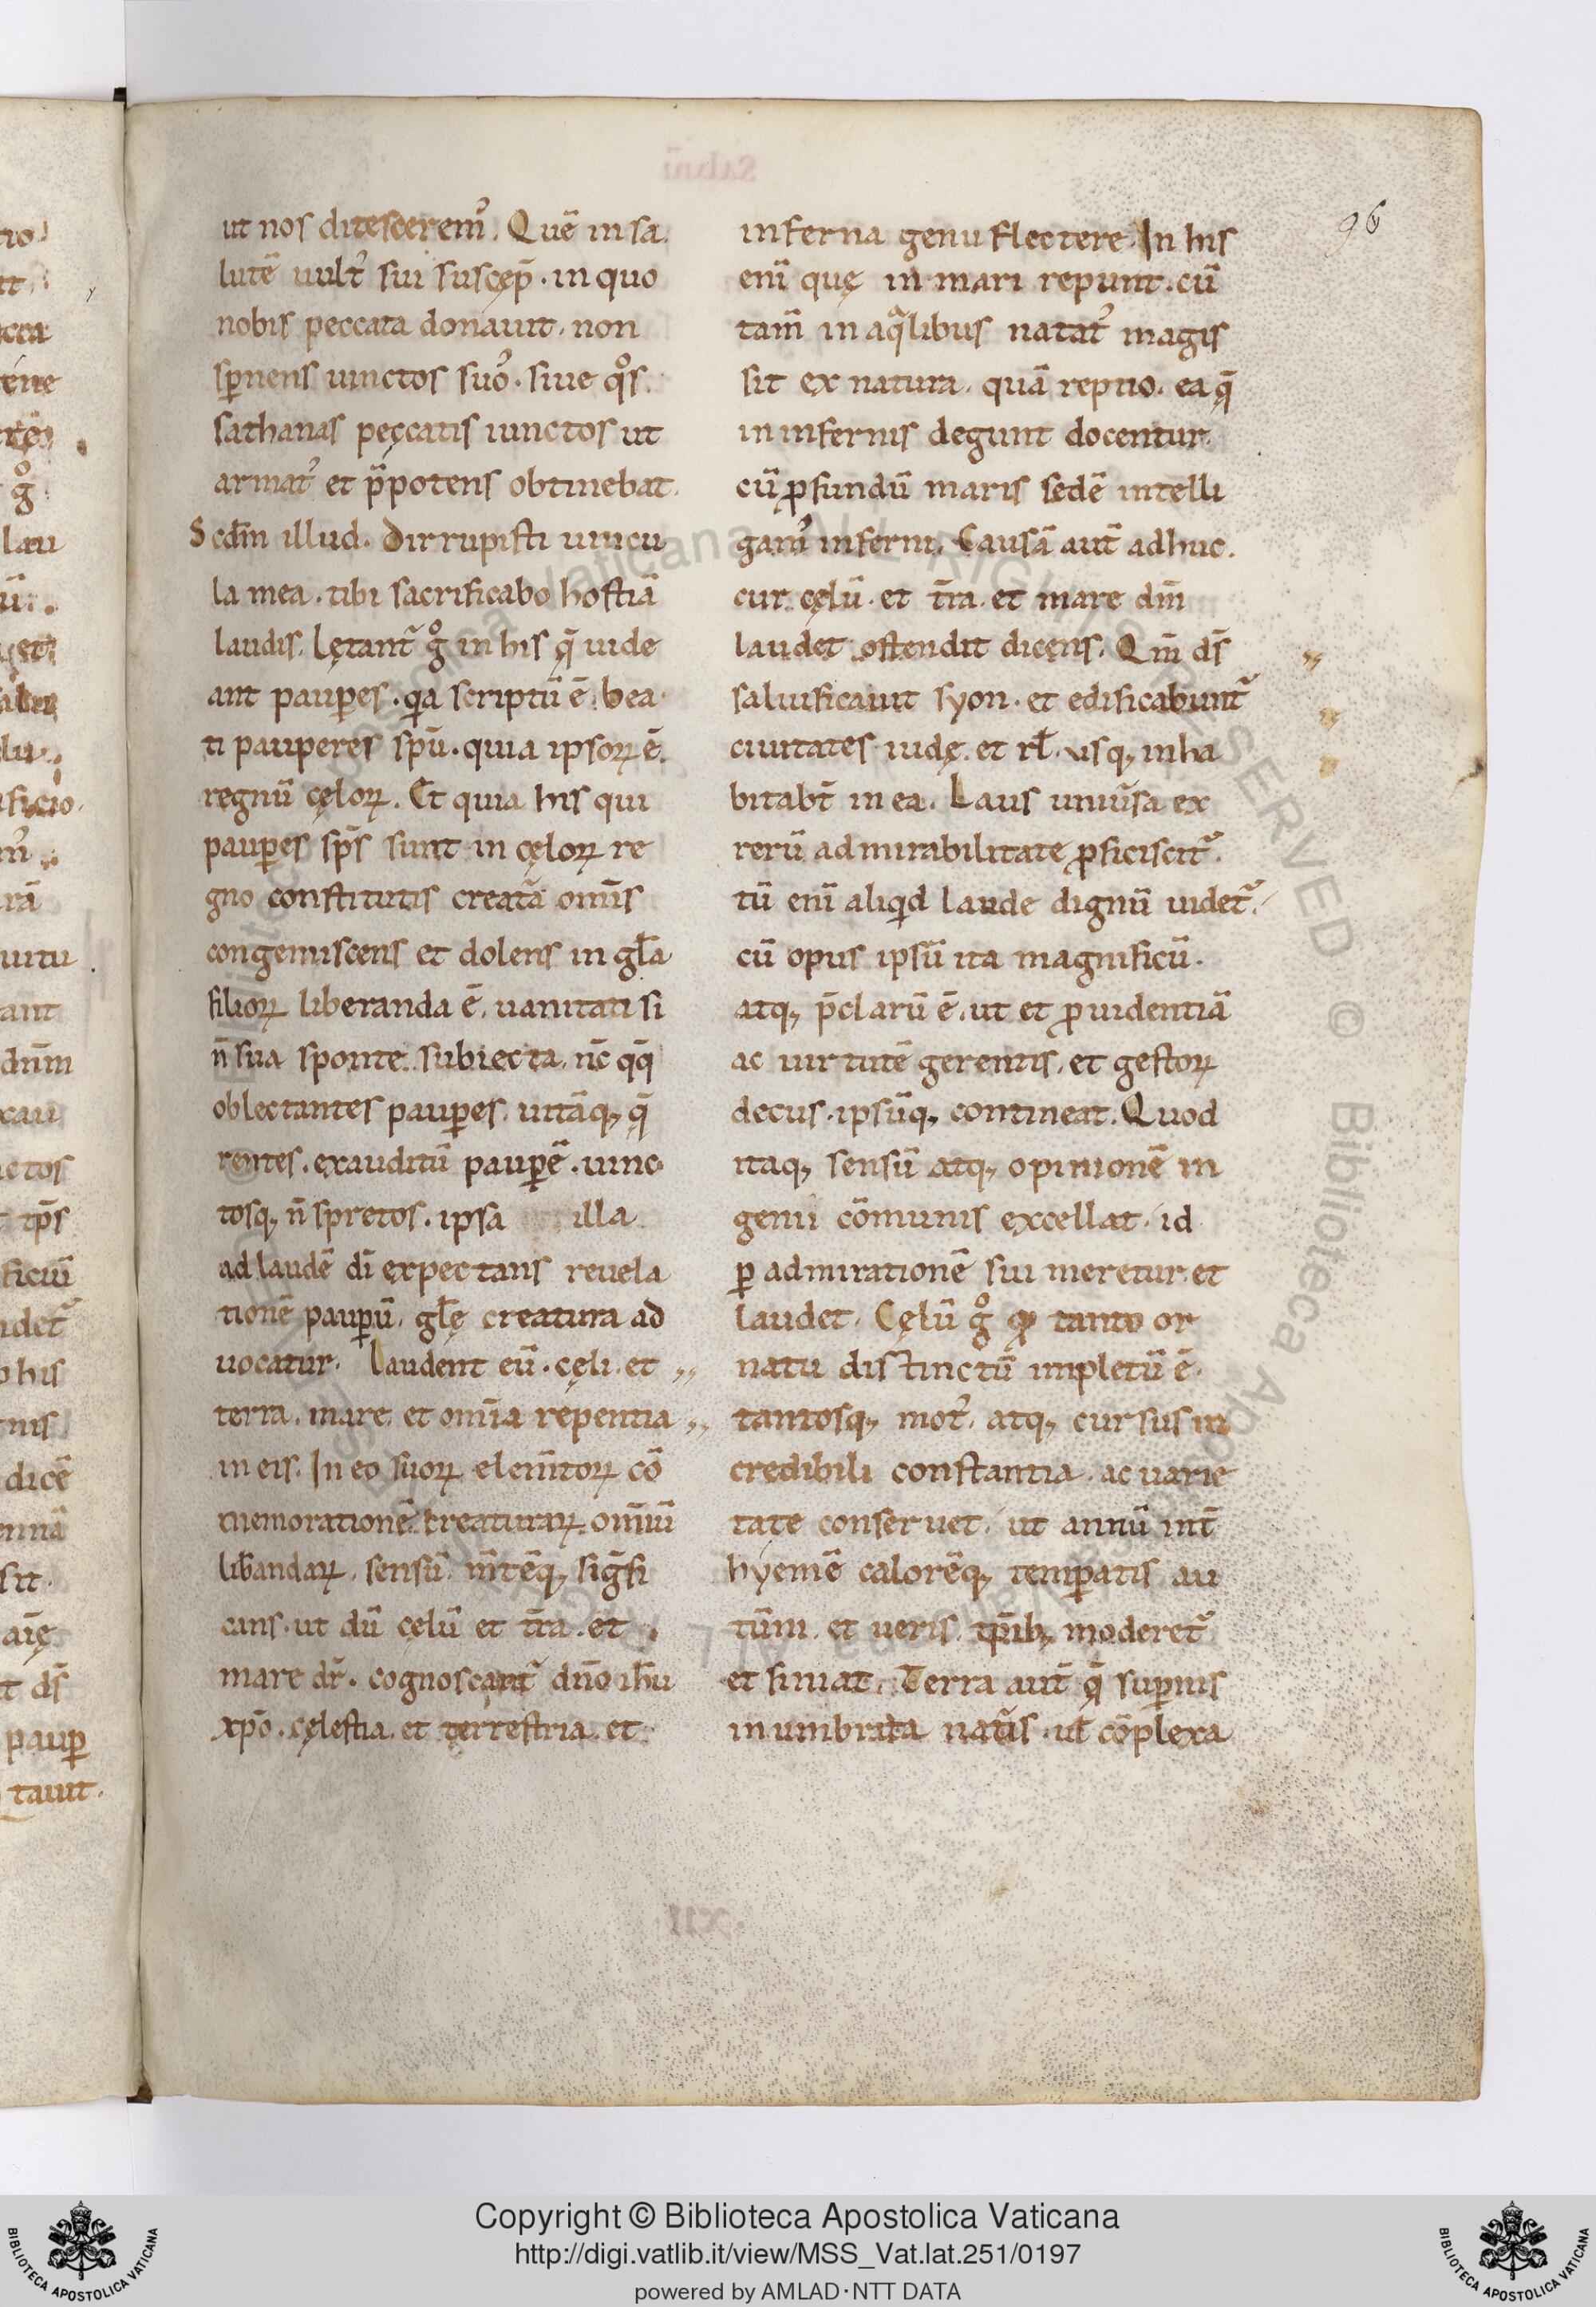 96
ut nos ditesceremꝰ. Quē in sa
lutē uultꝰ sui suscęp̄. in quo
nobis peccata donauit. non
sꝑnens uinctos suoꝰ. siue qͦs
sathanas pęccatis iunctos ut
armatꝰ et p̄potens obtinebat.
Scdm̄ illud. Dirrupisti uincu
la mea. tibi sacrificabo hostiā
laudis. Lętant᷑ gͦ in his q̄ uide
ant pauꝑes. qa scriptū ē. bea
ti pauperes spū. quia ipsoꝝ ē.
regnū cęloꝝ. Et quia his qui
pauꝑes sp̄s sunt in cęloꝝ re
gno constitutis creata om̄is
congemiscens et dolens in gl̄a
filioꝝ liberanda ē. uanitati si
n̄ sua sponte subiecta. nc̄ qq̄
oblectantes pauꝑes. uitāq, q̄
rentes. exauditū pauꝑē. uinc
tosq, n̄ spretos. ipsa illa
ad laudē dī expectans reuela
tionē pauꝑū. gl̄ę creatura ad
uocatur. Laudent eū. cęli. et
terra. mare. et om̄ia repentia
in eis. In eo suoꝝ elem̄toꝝ cō
memorationē creaturaꝝ. om̄iū
lib̄andaꝝ. sensū m̄tēq, siḡfi
cans. ut dū cęlū et t̄ra. et
mare dr̄. cognoscant᷑ dn̄o ihu̅
xpō. cęlestia. et terrestria. et
inferna genu flectere. In his
enī quę in mari repunt. cū
tam̄ in aqͣlibus natatꝰ magis
sit ex natura. quā reptio. ea q̄
in infernis degunt docentur.
cū ꝓfundū maris sedē intelli
gamꝰ inferni. Causā aut̄ adhuc.
cur cęlū. et t̄ra. et mare dm̄
laudet ostendit dicens. Qm̄ ds̄
saluificauit syon. et edificabunt᷑
ciuitates iudę. et rł. usq, inha
bitabt̄ in ea. Laus uniūsa ex
rerū admirabilitate ꝓficiscit᷑.
tū enī aliqid laude dignū uidet᷑.
cū opus ipsū ita magnificū.
atq, p̄clarū ē. ut et ꝓuidentiā
ac uirtutē gerentis. et gestoꝝ
decus. ipsūq, contineat. Quod
itaq, sensū atq, opinionē in
genii cōmunis excellat. id
ꝑ admirationē sui meretur. et
laudet. Cęlū gͦ tanto or
natu distinctū impletū ē.
tantosq, motꝰ. atq, cursus in
credibili constantia. ac uarie
tate conseruet. ut annū int̄
hyemē calorēq, temꝑatis au
tūm. et ueris. tp̄ib, moderet᷑
et finiat. Terra aut̄ q̄ suꝑnis
inumbrata natīs. ut cōplexa
Copyright © Biblioteca Apostolica Vaticana
http://digi.vatlib.it/view/MSS_Vat.lat.251/0197
powered by AMLAD·NTT DATA